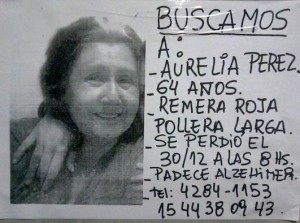 BUSCAMOS
A:
-AURELIA PEREZ.
-64 AÑOS.
-REMERA ROJA
-POLLERA LARGA.
-SE PERDIÓ EL
30/12 A LAS 8 HS.
-PADECE ALZEHIMER.
-tel: 4284-1153
15 44 38 09 43.